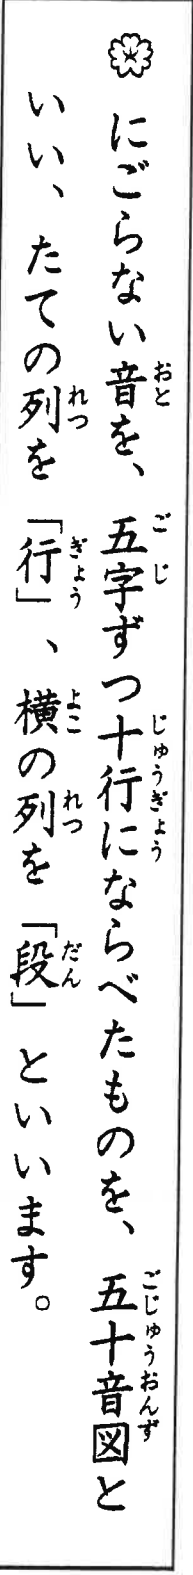 にごらない音を、五字ずつ十行にならべたものを、五十音図と
いい、たての列を「行」、横の列を「段」といいます。